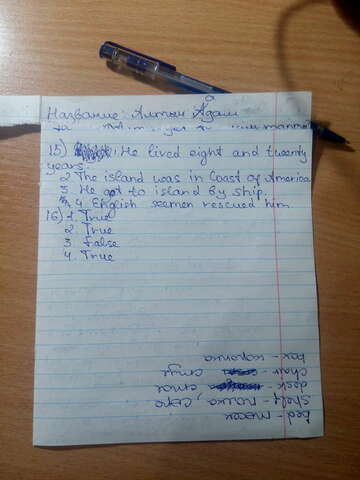 Название: Алтын Адам
15) He lived eight and twenty
years.
2 The island was in Coast of America
3 He got to island by ship.
4. English seemen rescued him.
16) 1. True
2. True
3. False
4. True
bed -
shelf - полка,
desk -
chair - стул
box - коробка